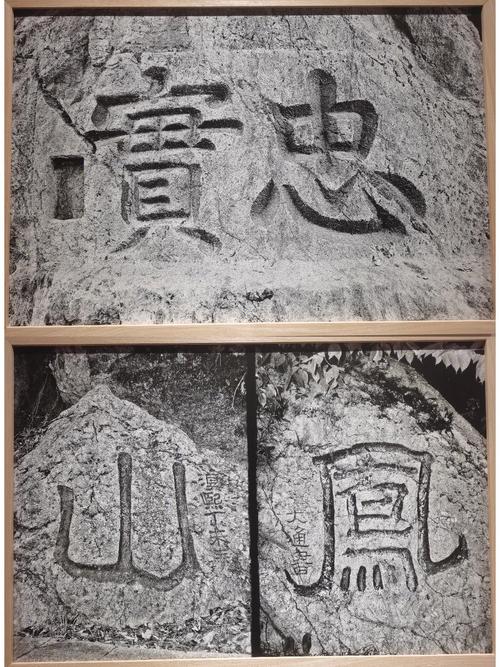 忠實
鳳
大通書
淳熙丁未
山